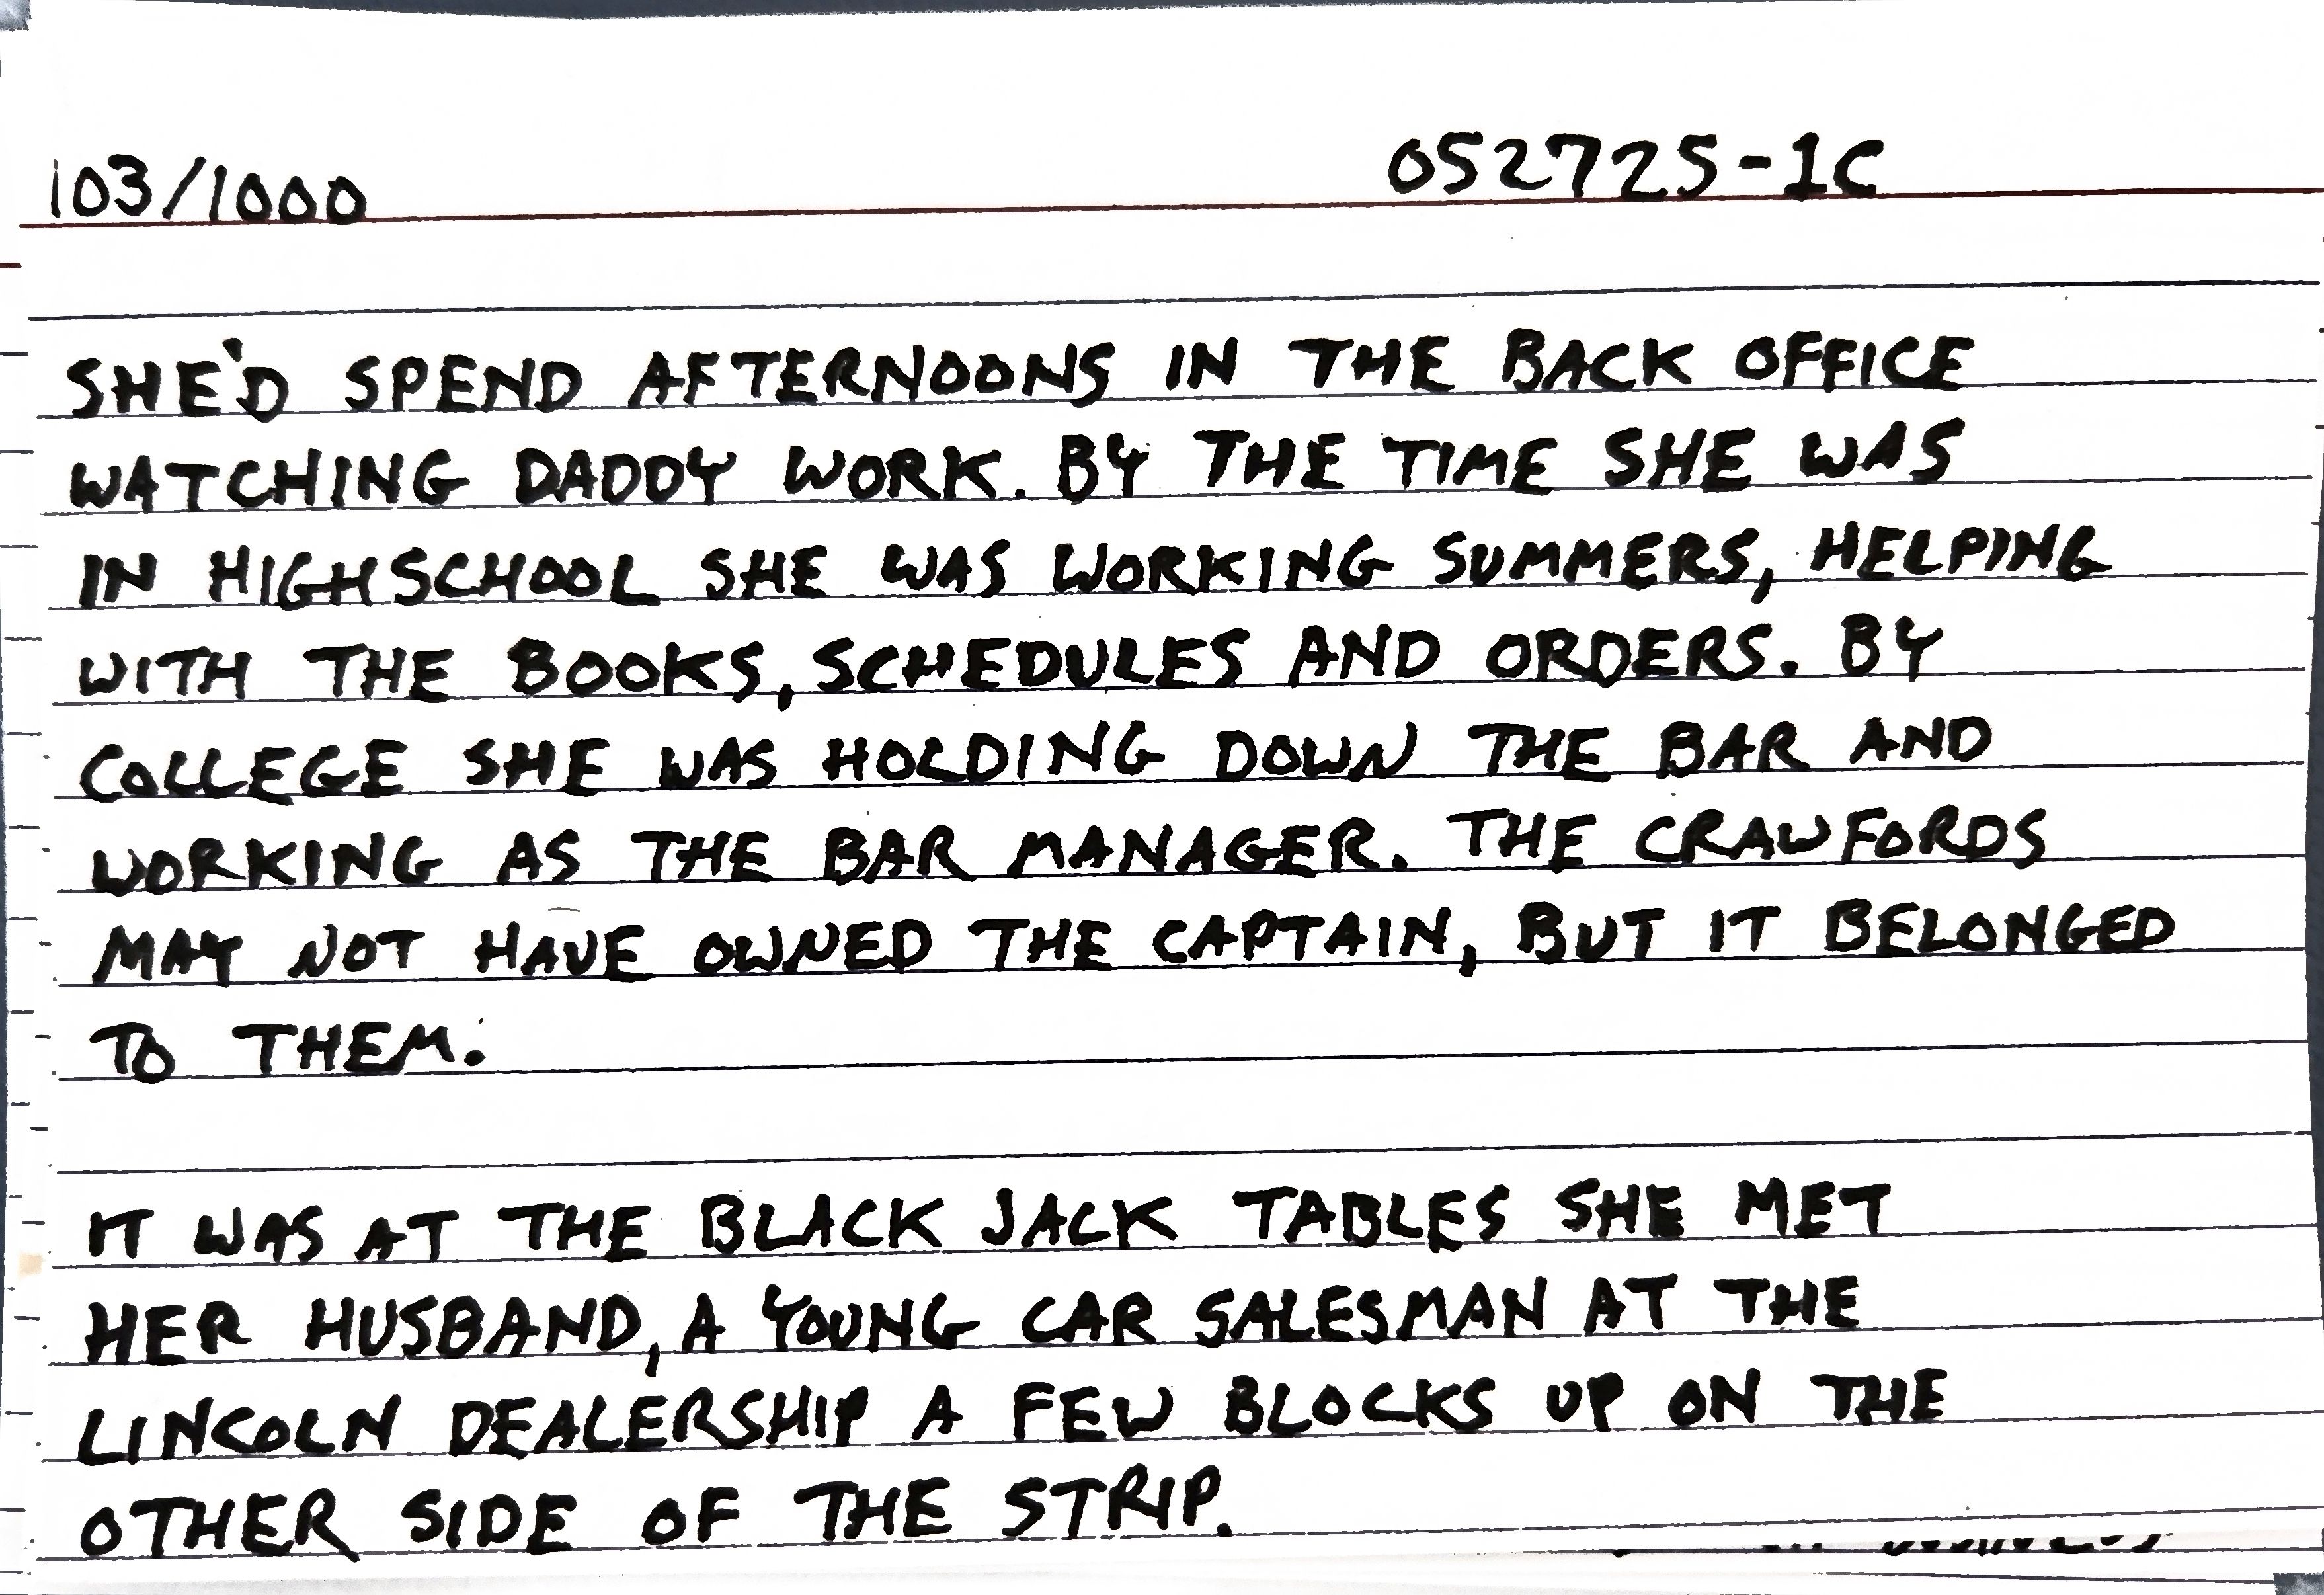 103/1000
052725-1C
SHE'D SPEND AFTERNOONS IN THE BACK OFFICE
WATCHING DADDY WORK. BY THE TIME SHE WAS
IN HIGHSCHOOL SHE WAS WORKING SUMMERS, HELPING
WITH THE BOOKS, SCHEDULES AND ORDERS. BY
COLLEGE SHE WAS HOLDING DOWN THE BAR AND
WORKING AS THE BAR MANAGER. THE CRAWFORDS
MAY NOT HAVE OWNED THE CAPTAIN, BUT IT BELONGED
TO THEM.
IT WAS AT THE BLACK JACK TABLES SHE MET
HER HUSBAND, A YOUNG CAR SALESMAN AT THE
LINCOLN DEALERSHIP A FEW BLOCKS UP ON THE
OTHER SIDE OF THE STRIP.